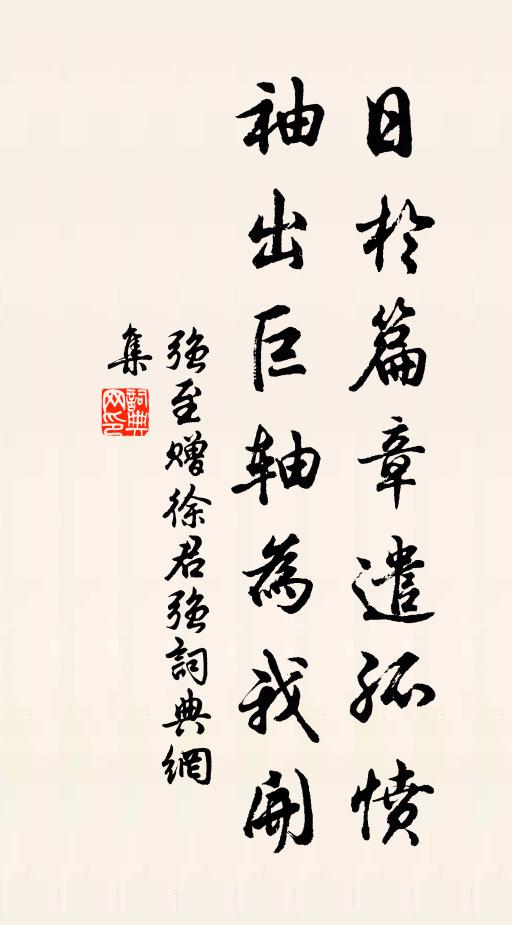 日於篇章遣孤憤
袖出巨軸為我開
強至贈徐君強詞典網
集
詞典
网印